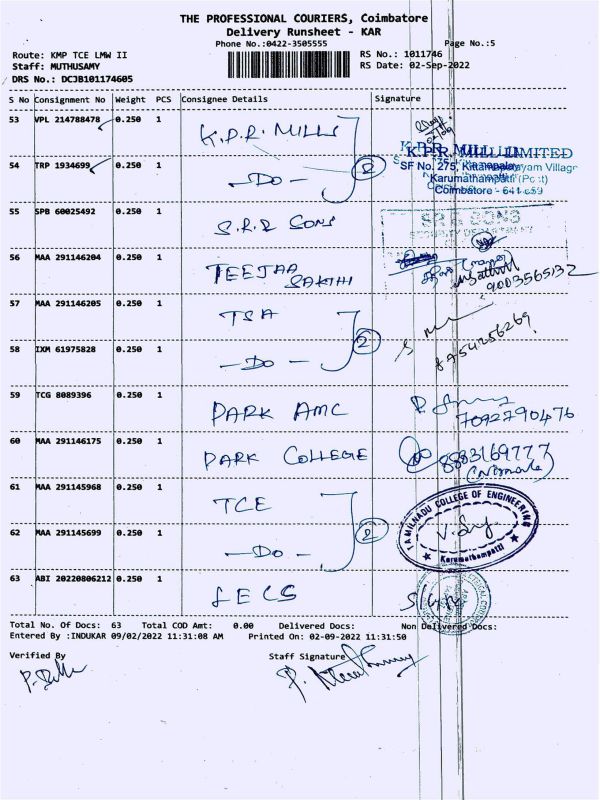 THE PROFESSIONAL COURIERS, Coimbatore
Delivery Runsheet - KAR
Phone No.:0422-3505555 Page No.:5
Route: KMP TCE LMW II RS No.: 1011746
Staff: MUTHUSAMY RS Date: 02-Sep-2022
DRS No.: DCJB101174605
S No Consignment No Weight PCS Consignee Details Signature
53 VPL 214788478 0.250 1 K.P.R. MILLS
K.P.R. MILL LIMITED
54 TRP 1934699 0.250 1 - Do - 2
SF No. 275,
Karumathampatti
Coimbatore - 641 659
55 SPB 60025492 0.250 1 S.R.R SONS
56 MAA 291146204 0.250 1 TEEJAA SAKTHI 9003565132
57 MAA 291146205 0.250 1 TSA
58 IXM 61975828 0.250 1 - Do - 2 8754256269
59 TCG 8089396 0.250 1 PARK AMC 7092790476
60 MAA 291146175 0.250 1 PARK COLLEGE 8883169777
61 MAA 291145968 0.250 1 TCE
TAMILNADU COLLEGE OF ENGINEERING
Karumathampatti
62 MAA 291145699 0.250 1 - Do - 2
63 ABI 20220806212 0.250 1
Total No. Of Docs: 63 Total COD Amt: 0.00 Delivered Docs: Non Delivered Docs:
Entered By :INDUKAR 09/02/2022 11:31:08 AM Printed On: 02-09-2022 11:31:50
Verified By Staff Signature